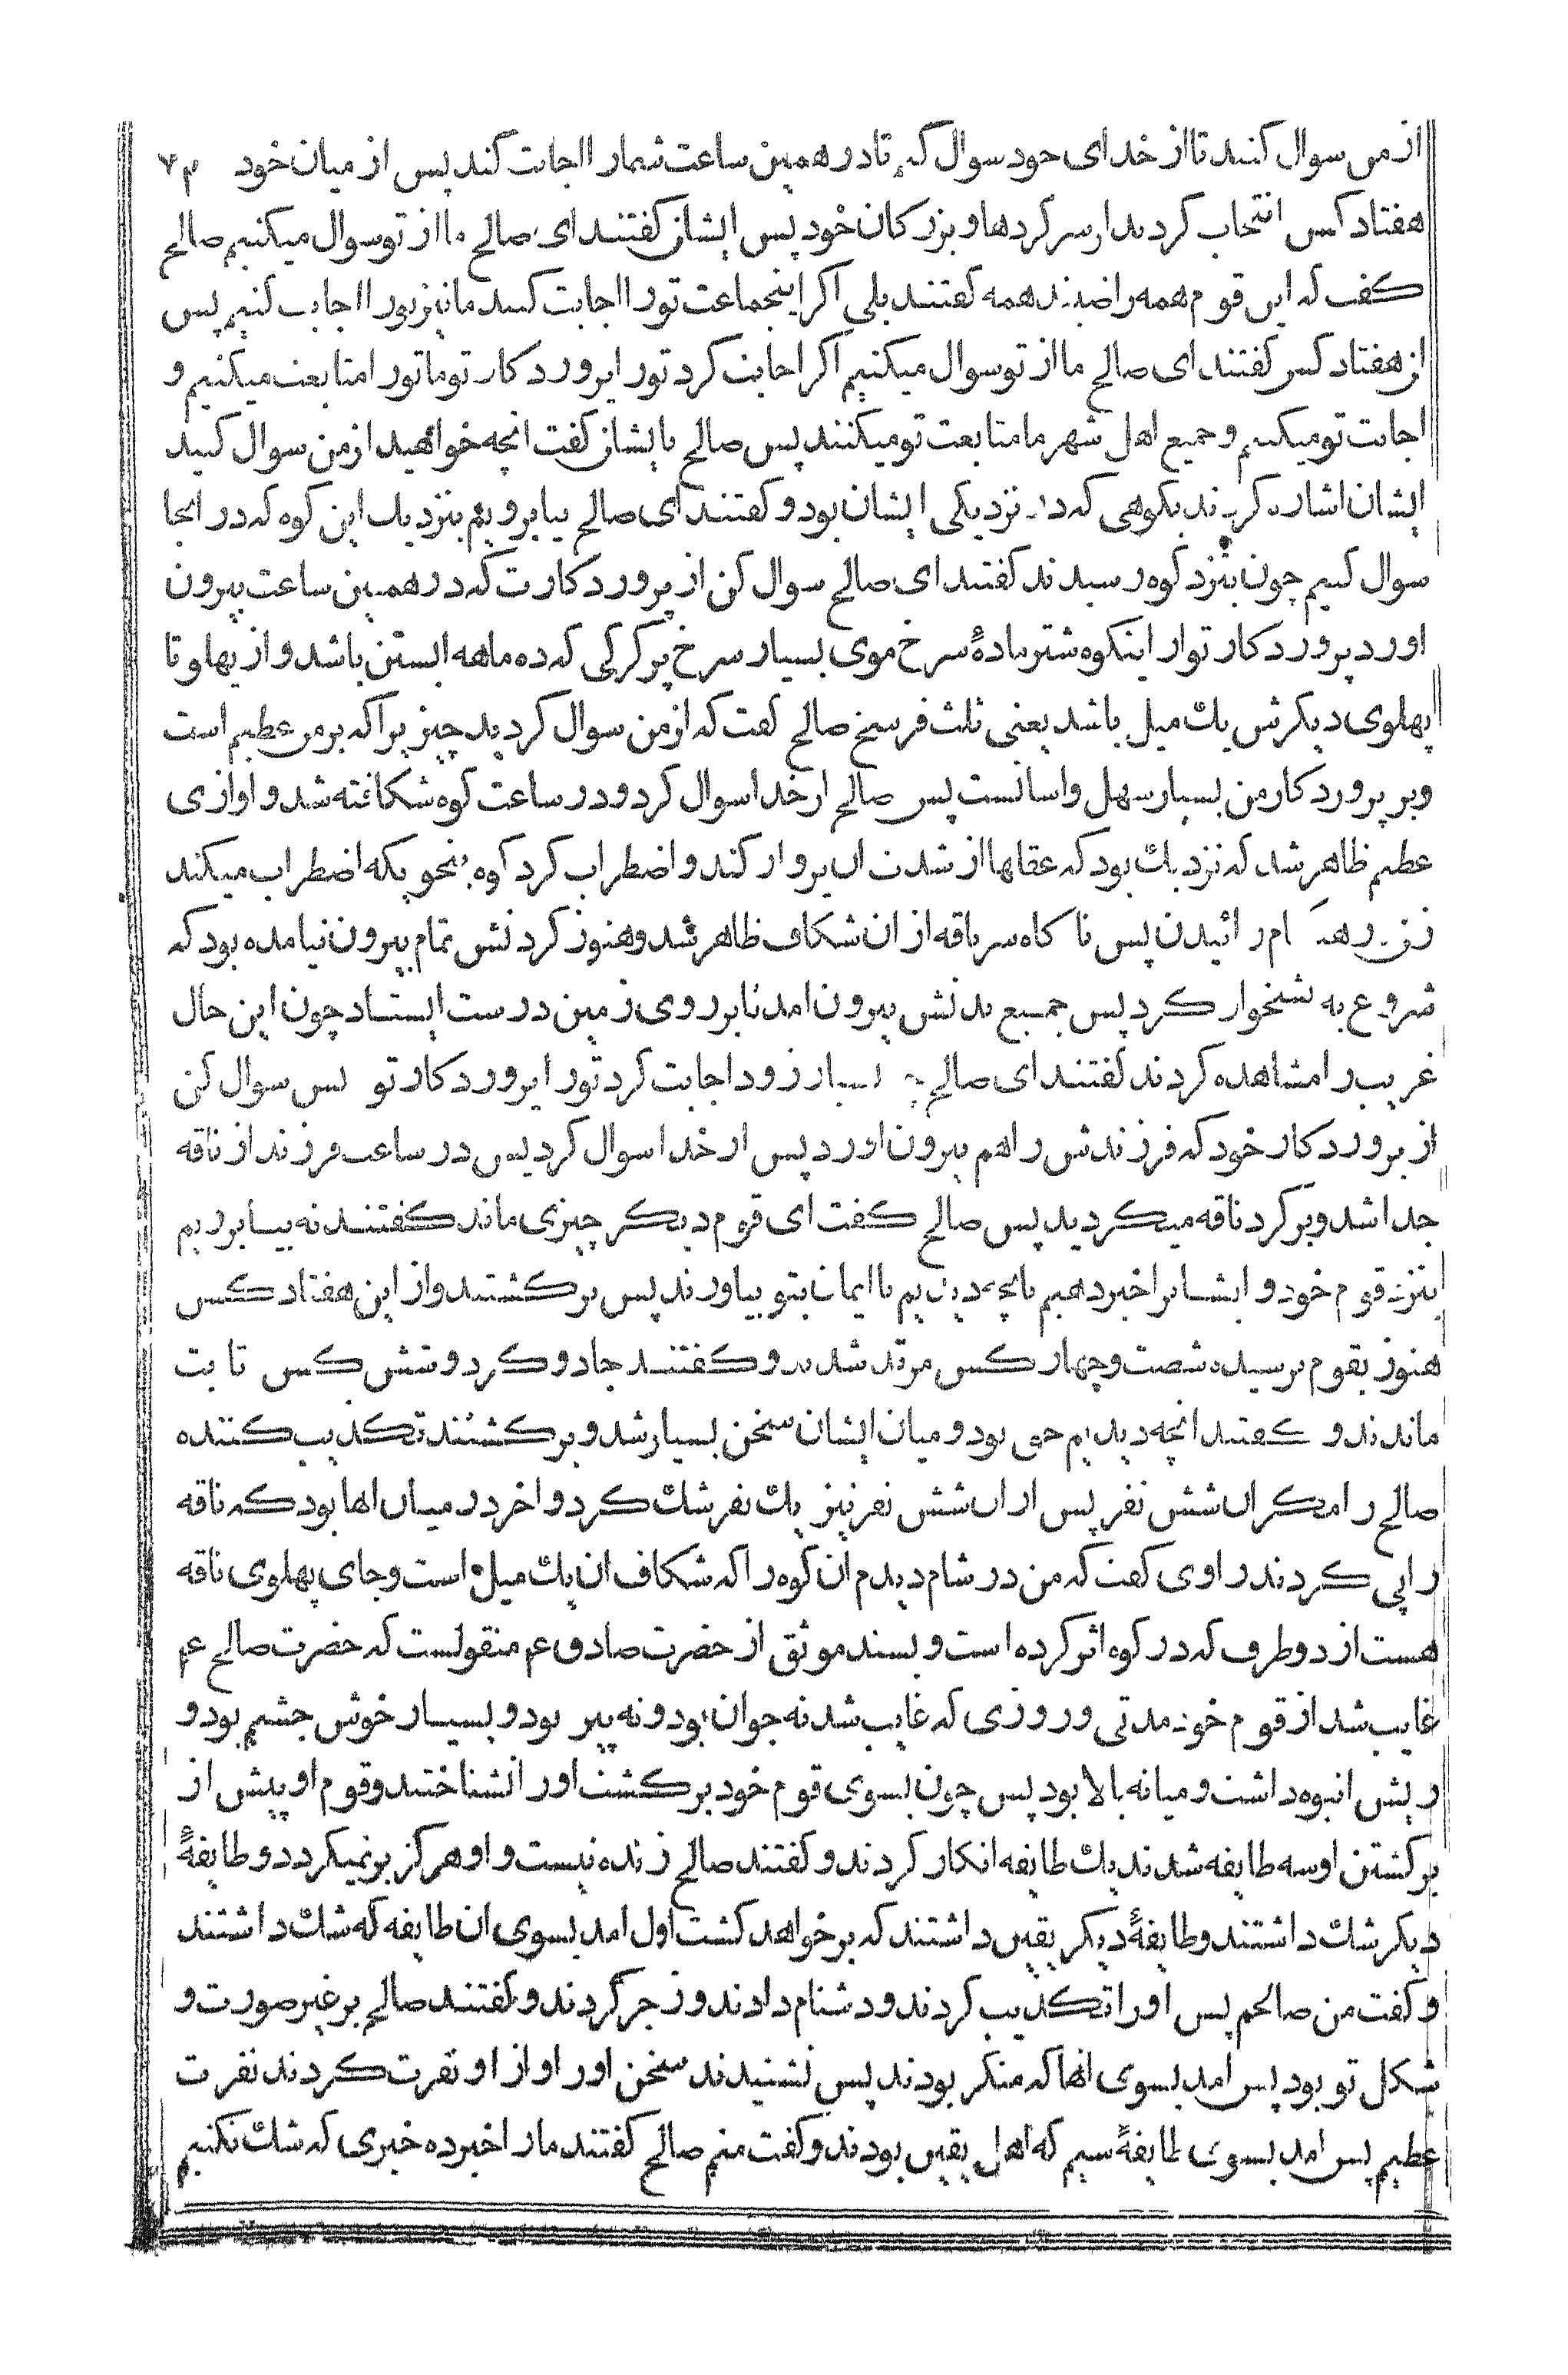 از من سوال کنند تا از خدای خود سوال کنم تا در همین ساعت شمارا اجابت کند پس از میان خود ۷۴
هفتاد کس انتخاب کردند از سر کردها و بزرکان خود پس ایشان کفتند ای صالح ما از تو سوال میکنیم صالح
کفت که این قوم همه راضیند همه کفتند بلی اکر اینجماعت تورا اجابت کنند ما نیز تورا اجابت کنیم پس
ان هفتاد کس کفتند ای صالح ما از تو سوال میکنیم اکر اجابت کرد تورا پروردکار تو ما تورا متابعت میکنیم و
اجابت تو میکنیم و جمیع اهل شهر ما متابعت تو میکنند پس صالح بایشان کفت انچه خواهید از من سوال کنید
ایشان اشاره کردند بکوهی که در نزدیکی ایشان بود و کفتند ای صالح بیا برویم بنزدیك این کوه که در انجا
سوال کنیم چون بنزد کوه رسیدند کفتند ای صالح سوال کن از پروردکارت که در همین ساعت بیرون
اورد پروردکار تو از اینکوه شتر مادهٔ سرخ موی بسیار سرخ پر کرکی که ده ماهه ابستن باشد و از پهلو تا
پهلوی دیکرش یك میل باشد یعنی ثلث فرسخ صالح کفت که از من سوال کردید چیزیرا که بر من عظیم است
و بر پروردکار من بسیار سهل و اسانست پس صالح از خدا سوال کرد و در ساعت کوه شکافته شد و اوازی
عظیم ظاهر شد که نزدیك بود که عقلها از شدت ان پرواز کند و اضطراب کرد کوه بنحویکه اضطراب میکند
زن در هنکام زائیدن پس ناکاه سر ناقه از ان شکاف ظاهر شد و هنوز کردنش تمام بیرون نیامده بود که
شروع به نشخوار کرد پس جمیع بدنش بیرون امد تا بر روی زمین درست ایستاد چون این حال
غریب را مشاهده کردند کفتند ای صالح چه بسیار زود اجابت کرد تورا پروردکار تو پس سوال کن
از پروردکار خود که فرزندش را هم بیرون اورد پس از خدا سوال کرد پس در ساعت فرزند از ناقه
جدا شد و بر کرد ناقه میکردید پس صالح کفت ای قوم دیکر چیزی ماند کفتند نه بیا برویم
بنزد قوم خود و ایشانرا خبر دهیم بانچه دیدیم تا ایمان بتو بیاورند پس برکشتند و از این هفتاد کس
هنوز بقوم نرسیده شصت و چهار کس مرتد شدند و کفتند جادو کرد و شش کس ثابت
ماندند و کفتند انچه دیدیم حق بود و میان ایشان سخن بسیار شد و برکشتند تکذیب کننده
صالح را مکر ان شش نفر پس از ان شش نفر نیز یك نفر شك کرد و اخر در میان انها بود که ناقه
را پی کردند راوی کفت که من در شام دیدم ان کوه را که شکاف ان یك میل است و جای پهلوی ناقه
هست از دو طرف که در کوه اثر کرده است و بسند موثق از حضرت صادق عم منقولست که حضرت صالح عم
غایب شد از قوم خود مدتی و روزی که غایب شد نه جوان بود و نه پیر بود و بسیار خوش جشم بود و
ریش انبوه داشت و میانه بالا بود پس چون بسوی قوم خود برکشت اورا نشناختند و قوم او پیش از
برکشتن او سه طایفه شدند یك طایفه انکار کردند و کفتند صالح زنده نیست و او هرکز برنمیکردد و طایفهٔ
دیکر شك داشتند و طایفهٔ دیکر یقین داشتند که بر خواهد کشت اول امد بسوی ان طایفه که شك داشتند
و کفت من صالحم پس اورا تکذیب کردند و دشنام دادند و زجر کردند و کفتند صالح بر غیر صورت و
شکل تو بود پس امد بسوی انها که منکر بودند پس نشنیدند سخن اورا و از او نفرت کردند نفرت
عظیم پس امد بسوی طایفهٔ سیم که اهل یقین بودند و کفت منم صالح کفتند مارا خبر ده خبری که شك نکنیم